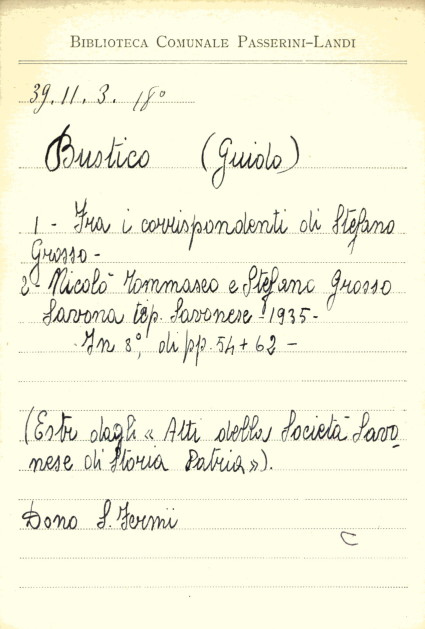 BIBLIOTECA COMUNALE PASSERINI-LANDI
39.11.3. 18°
Bustico (Guido)
1 - Fra i corrispondenti di Stefano
Grosso -
2 - Nicolò Tommaseo e Stefano Grosso
Savona tip. Savonese - 1935 -
In 8°, di pp. 54 + 62 -
(Estr dagli « Atti della Società Savo
nese di Storia Patria »).
Dono S. Fermi
C